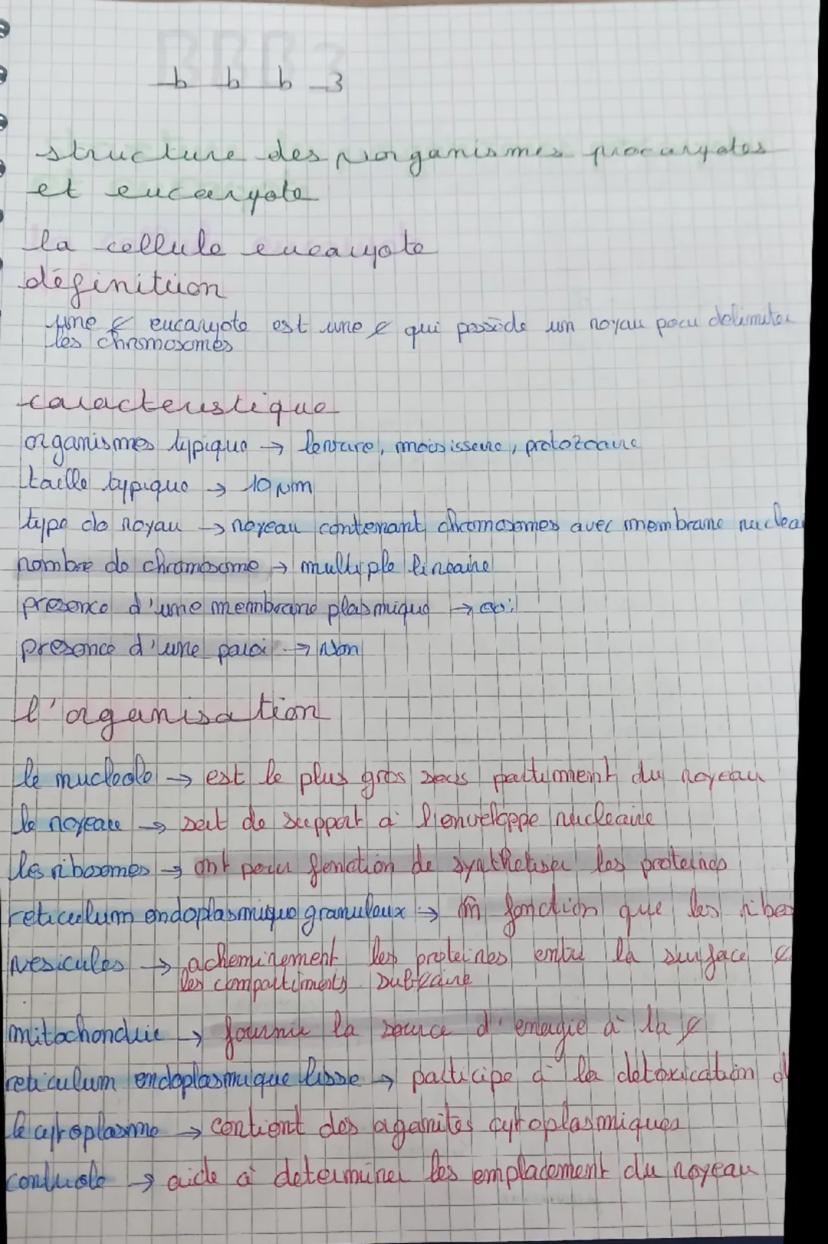 b b b 3
structure des organismes procaryotes
et eucaryote
la cellule eucaryote
définition
une ¢ eucaryote est une ¢ qui possède un noyau pour délimiter
les chromosomes
caracteristique
organismes typique → levure, moisissure, protozoaire
taille typique → 10 µm
type de noyau → noyeau contenant chromosomes avec membrane nuclea
nombre de chromosome → multiple lineaire
presence d'une membrane plasmique → oui
presence d'une paroi → Non
l'organisation
le nucleole → est le plus gros sous partiment du noyeau
le noyeau → sert de support à l'enveloppe nucleaire
les ribosomes → ont pour fonction de synthetiser les proteines
reticulum endoplasmique granuleux → m̂ fonction que les ribo
vesicules → acheminement les proteines entre la surface ¢
les compartiments
mitochondrie → fournir la source d'energie à la ¢
reticulum endoplasmique lisse → participe à la detoxication d
le cytoplasme → contient des cytoplasmiques
→ aide à determiner les emplacement du noyeau